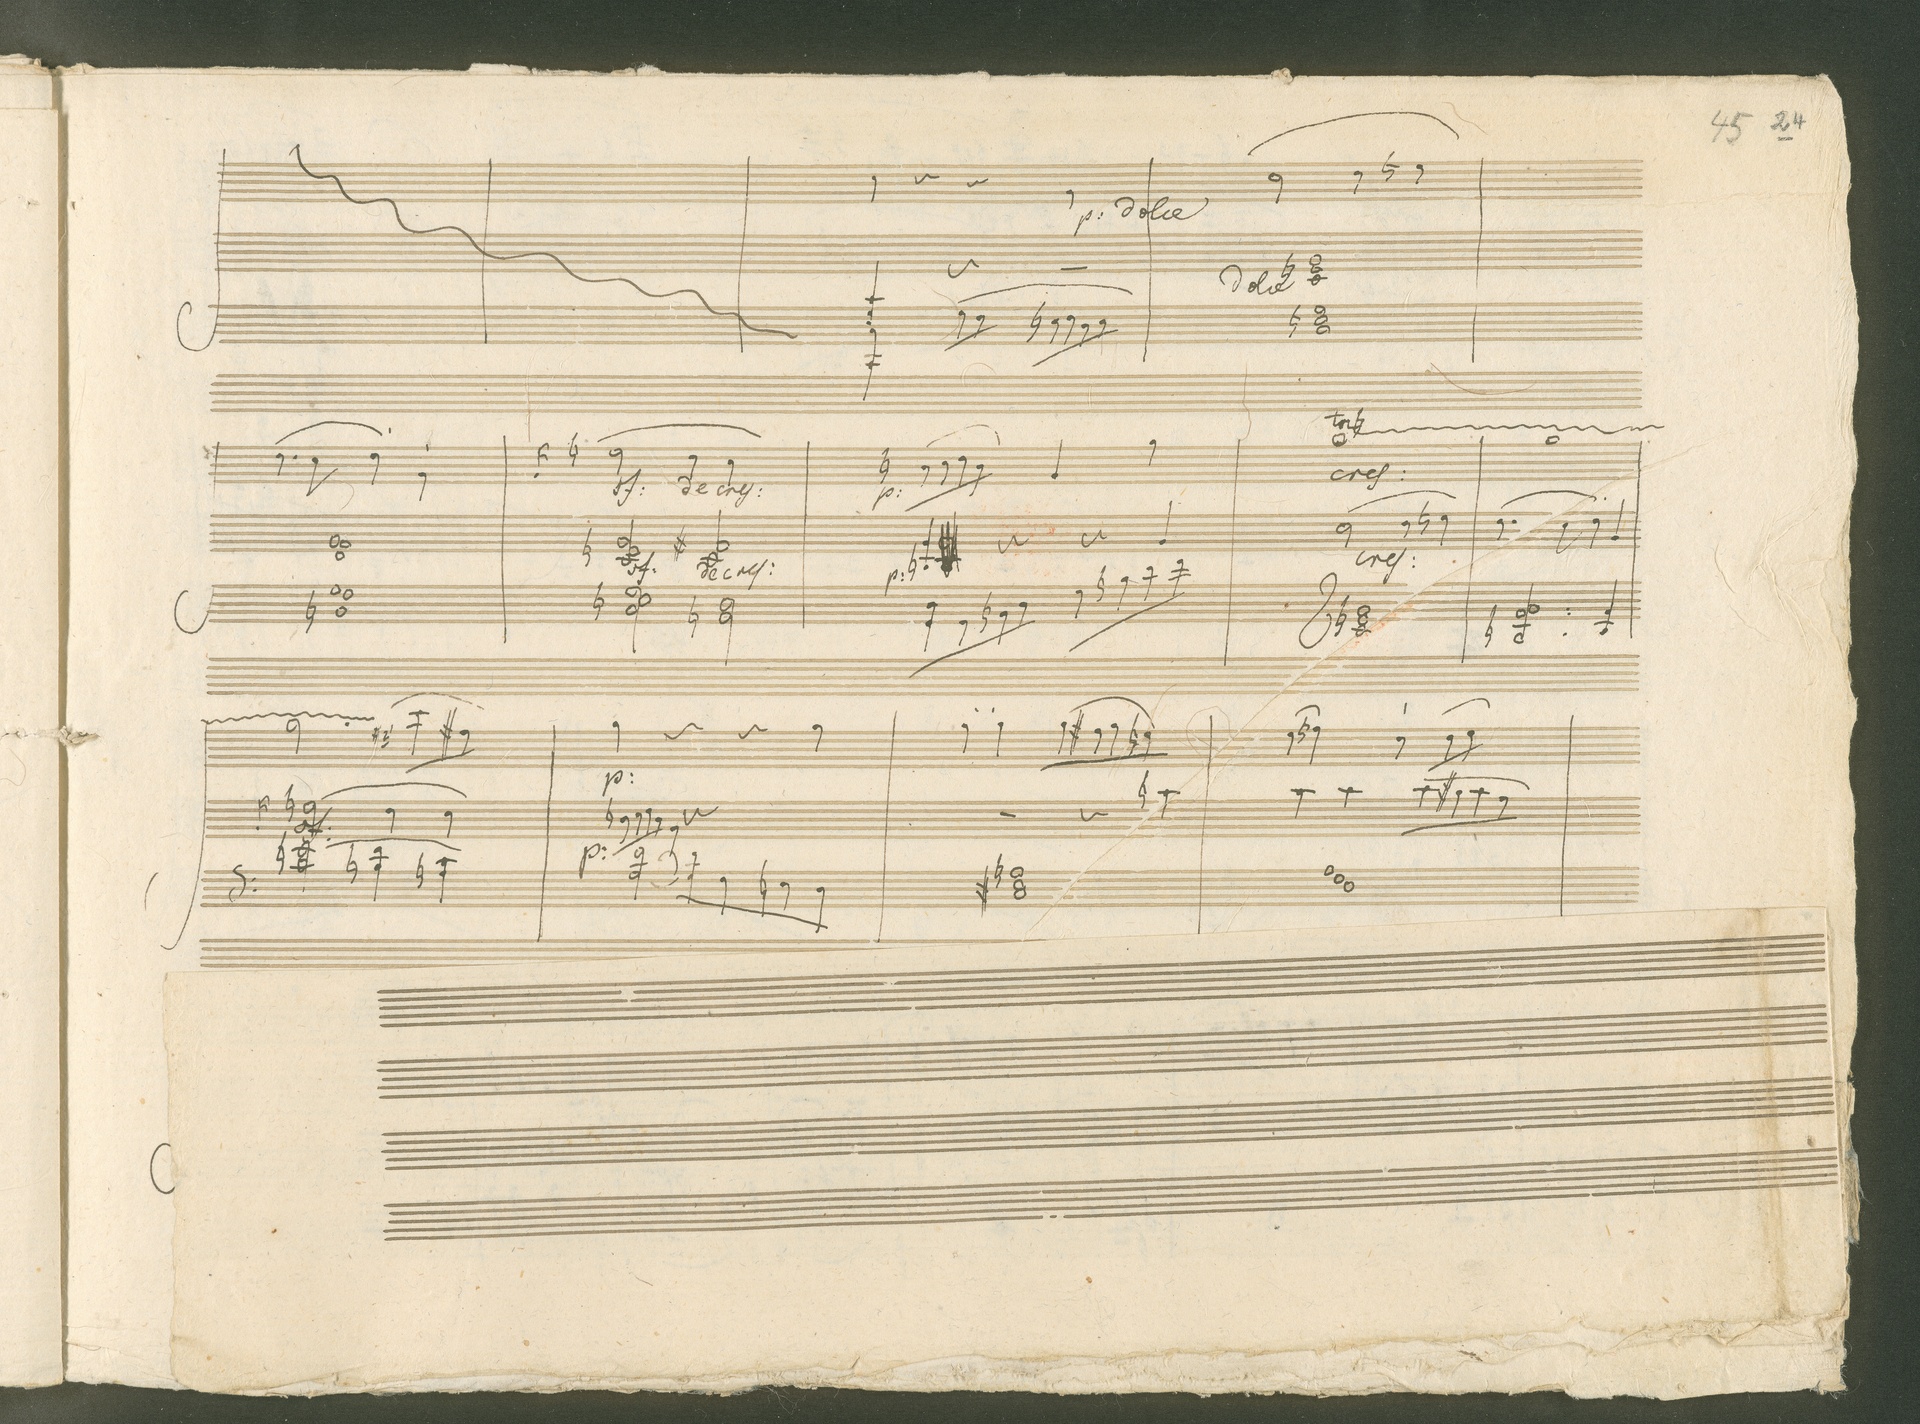 45 24
p: dolce
dolce
tr
cresc:
sf: decresc:
p:
sf: decresc:
p:
cresc:
p:
sf:
p: